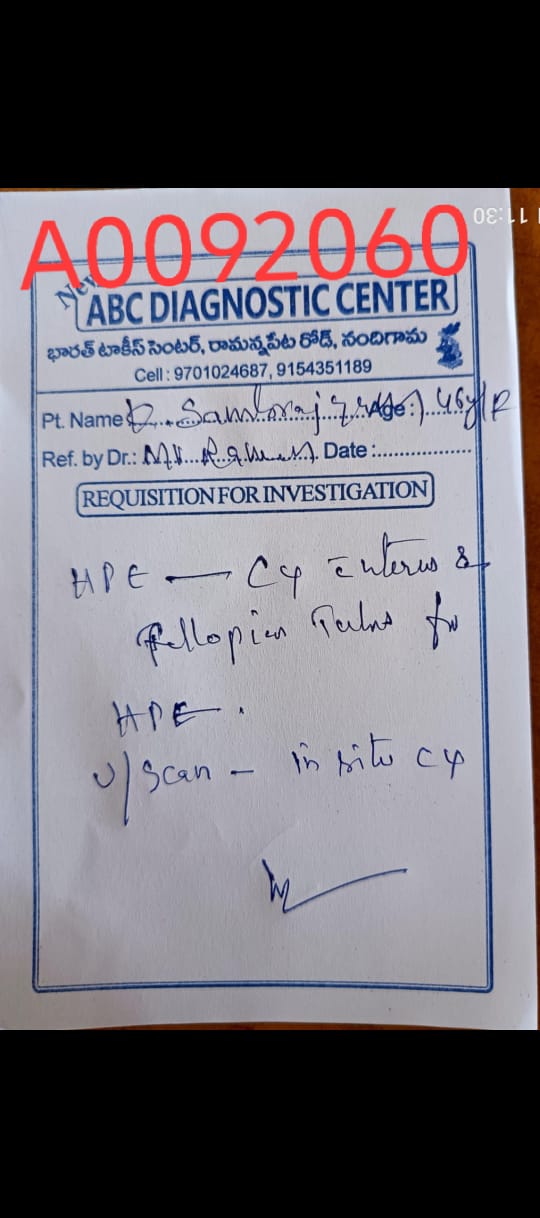 A0092060
11:30
New
ABC DIAGNOSTIC CENTER
భారత్ టాకీస్ సెంటర్, రామన్నపేట రోడ్, నందిగామ
Cell : 9701024687, 9154351189
Pt. Name K. Age : 46y/F
Ref. by Dr.: Date :
REQUISITION FOR INVESTIGATION
HPE — Cx uterus &
Fellopian Tubes for
HPE.
U/Scan - in situ Cx